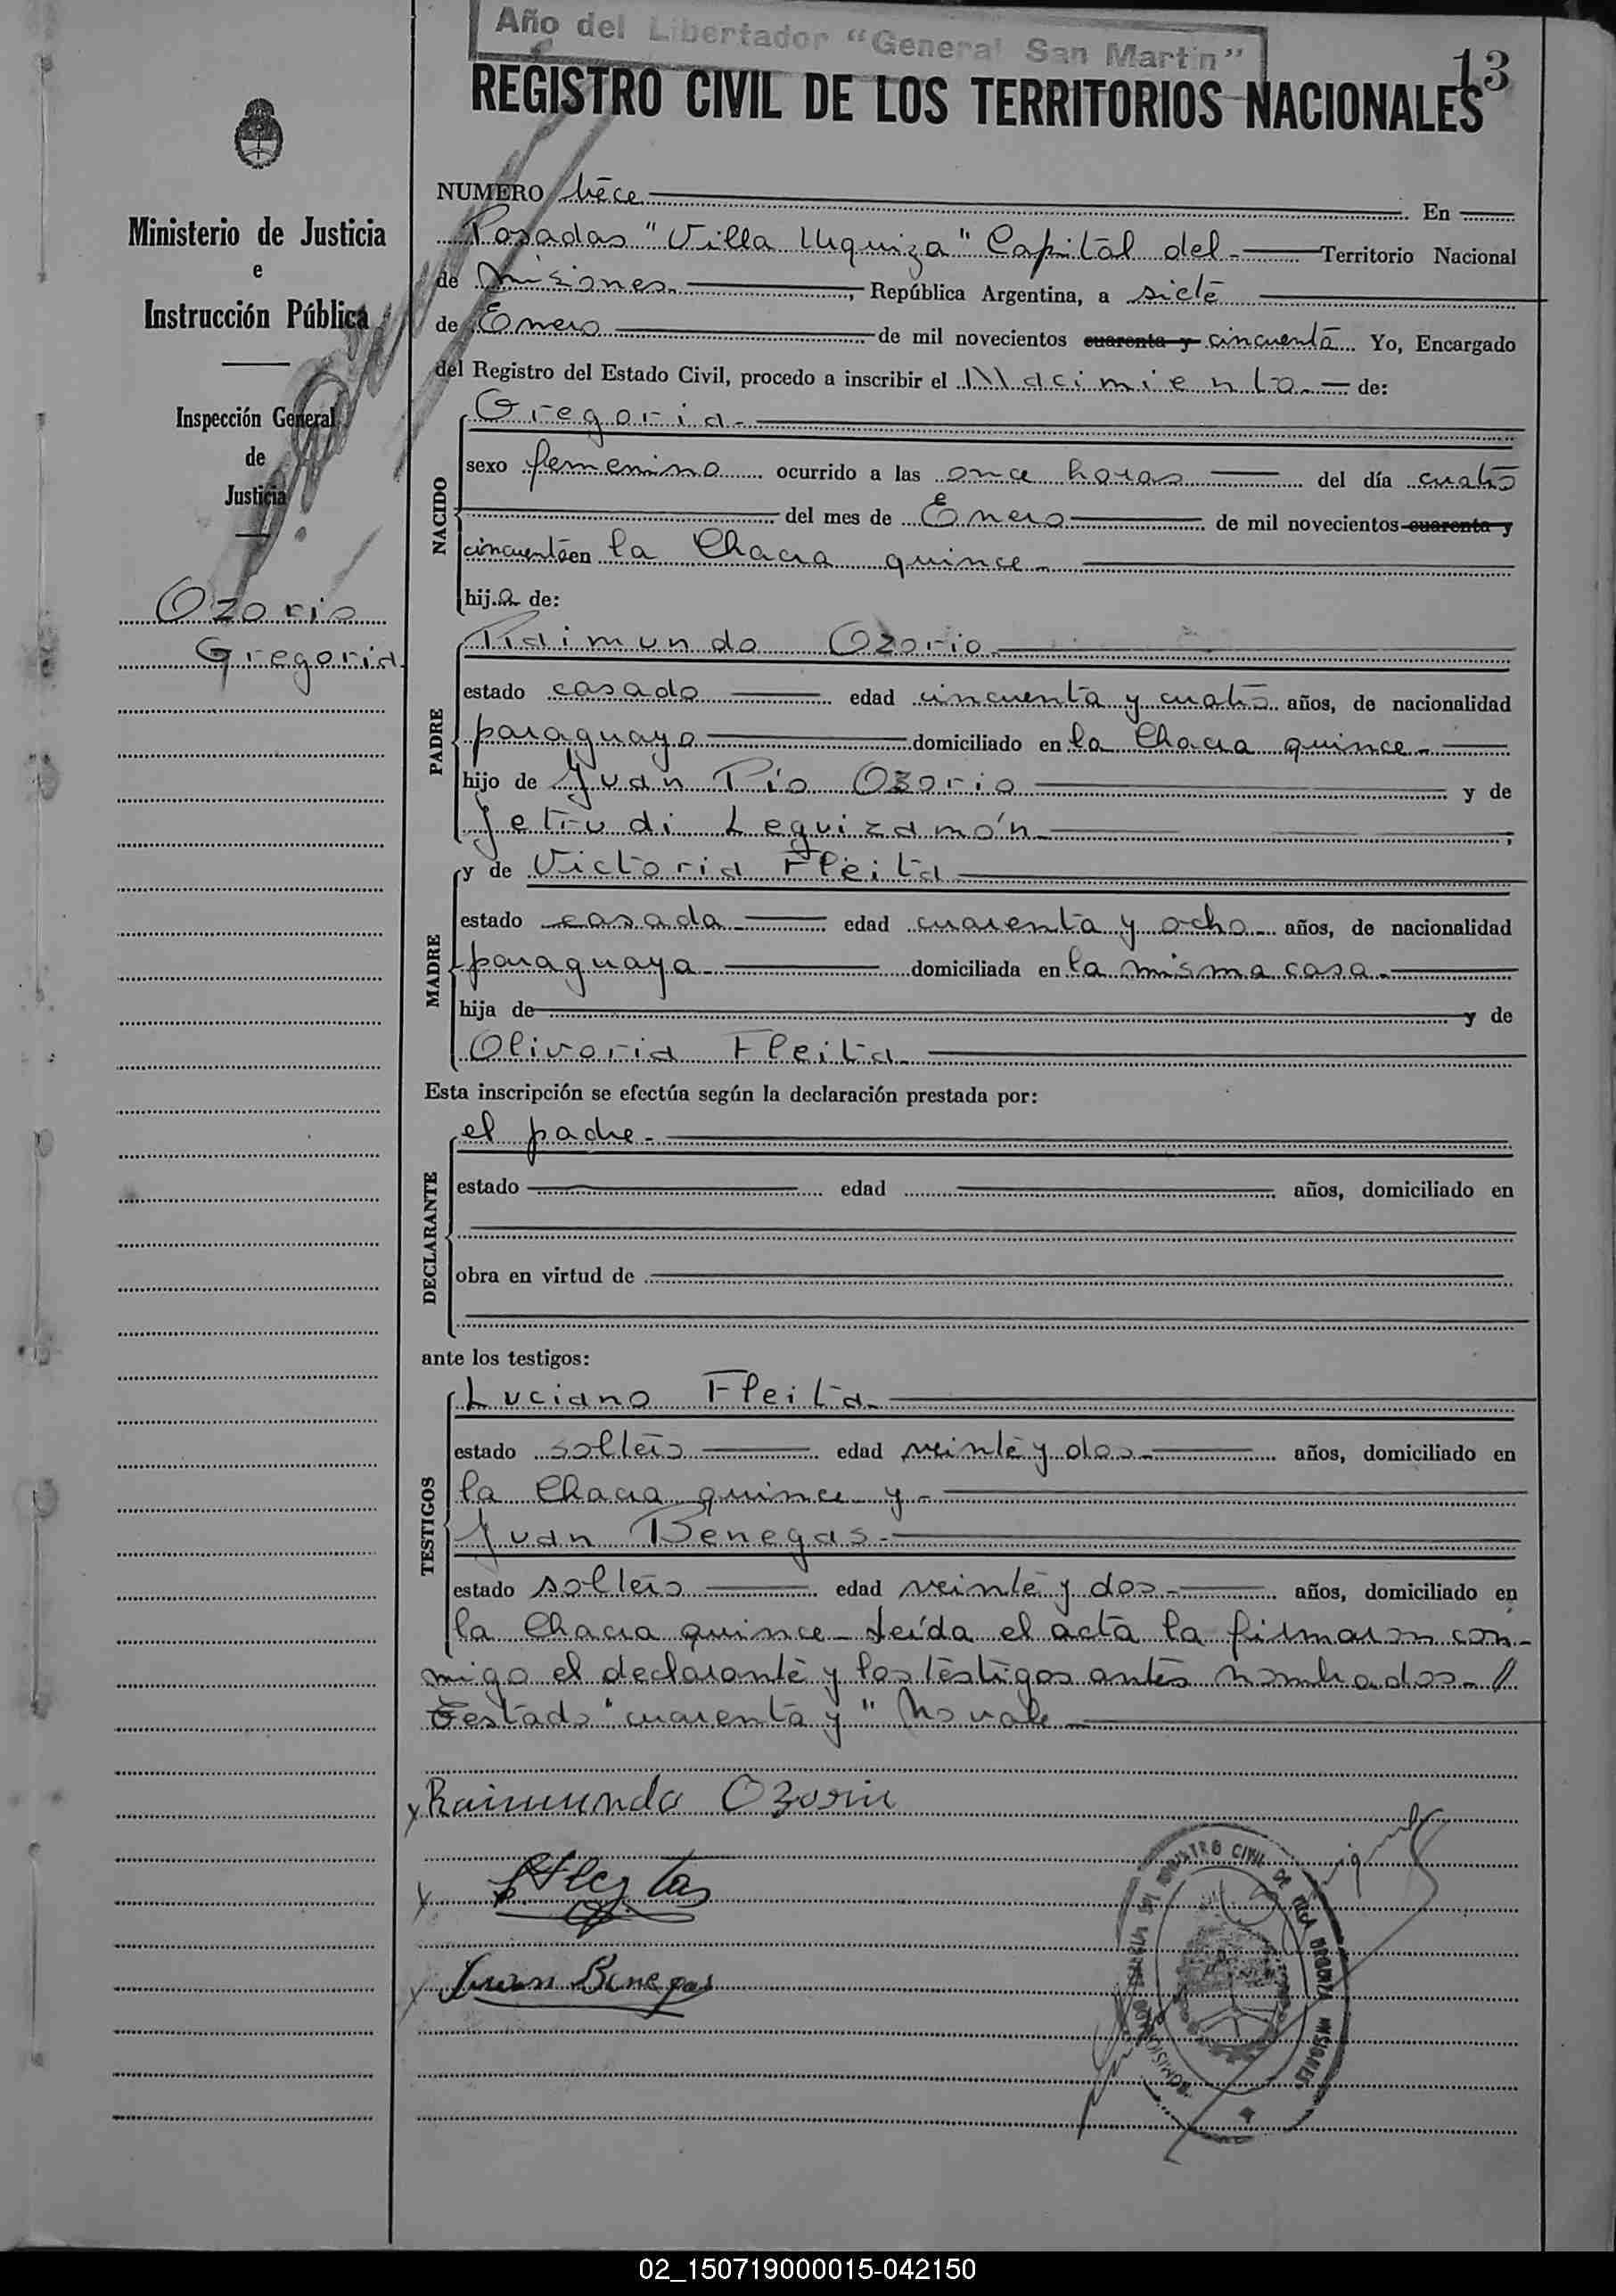 Año del Libertador "General San Martín"
13
REGISTRO CIVIL DE LOS TERRITORIOS NACIONALES
Ministerio de Justicia
e
Instrucción Pública
Inspección General
de
Justicia
Ozorio
Gregoria
NUMERO trece En
Posadas "Villa Urquiza" Capital del Territorio Nacional
de Misiones, República Argentina, a siete
de Enero de mil novecientos cuarenta y cincuenta Yo, Encargado
del Registro del Estado Civil, procedo a inscribir el Nacimiento de:
NACIDO
Gregoria
sexo femenino ocurrido a las once horas del día cuatro
del mes de Enero de mil novecientos cuarenta y
cincuenta en la Chacra quince
hija de:
PADRE
Raimundo Ozorio
estado casado edad cincuenta y cuatro años, de nacionalidad
paraguayo domiciliado en la Chacra quince
hijo de Juan Pío Ozorio y de
Jetrudi Leguizamón;
MADRE
y de Victoria Fleita
estado casada edad cuarenta y ocho años, de nacionalidad
paraguaya domiciliada en la misma casa
hija de y de
Olivoria Fleita
Esta inscripción se efectúa según la declaración prestada por:
DECLARANTE
el padre
estado edad años, domiciliado en
obra en virtud de
ante los testigos:
TESTIGOS
Luciano Fleita
estado soltero edad veinte y dos años, domiciliado en
la Chacra quince y
Juan Benegas
estado soltero edad veinte y dos años, domiciliado en
la Chacra quince - Leída el acta la firmaron con-
migo el declarante y los testigos antes nombrados.
Testado "cuarenta y" No vale
x Raimundo Ozorio
x L Fleytas
x Juan Benegas
REGISTRO CIVIL DE VILLA URQUIZA MISIONES
02_150719000015-042150